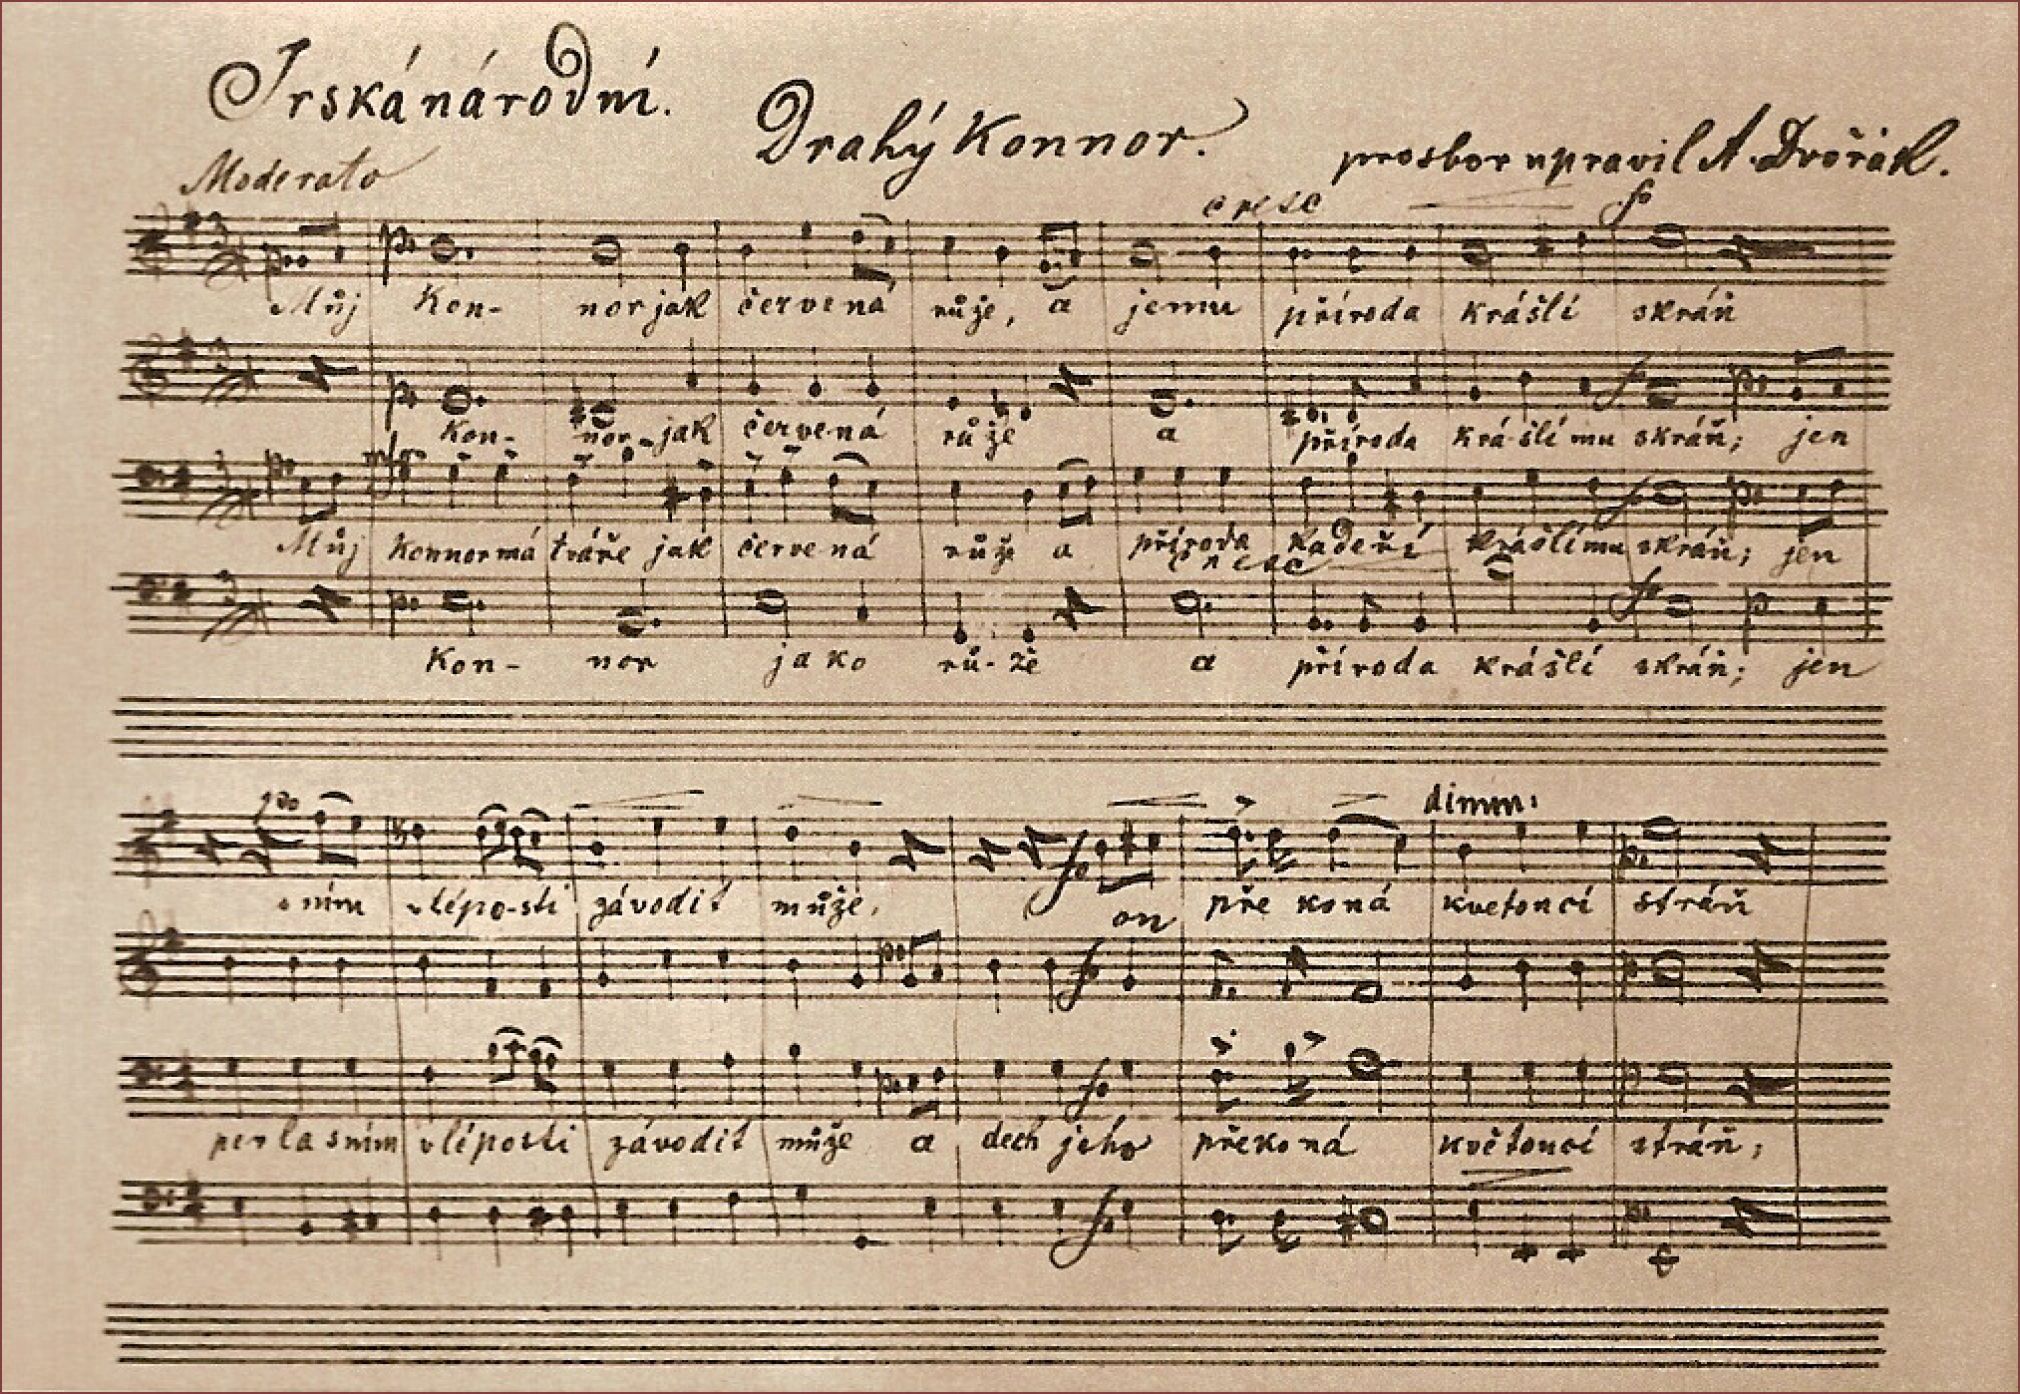 Irská národní.
Drahý Konnor.
pro sbor upravil A. Dvořák.
Moderato
cresc f
Můj Kon- nor jak červená růže, a jemu příroda krášlí skráň
f
Kon- nor jak červená růže a příroda krášlí mu skráň; jen
mf f
Můj Konnor má tváře jak červená růže a příroda kadeří krášlí mu skráň; jen
cresc f
Kon- nor jako rů- že a příroda krášlí skráň; jen
dimm.
f
s ním v lépo-sti závodit může, on překoná kvetoucí stráň
f
f
perla s ním v léposti závodit může a dech jeho překoná květoucí stráň;
f